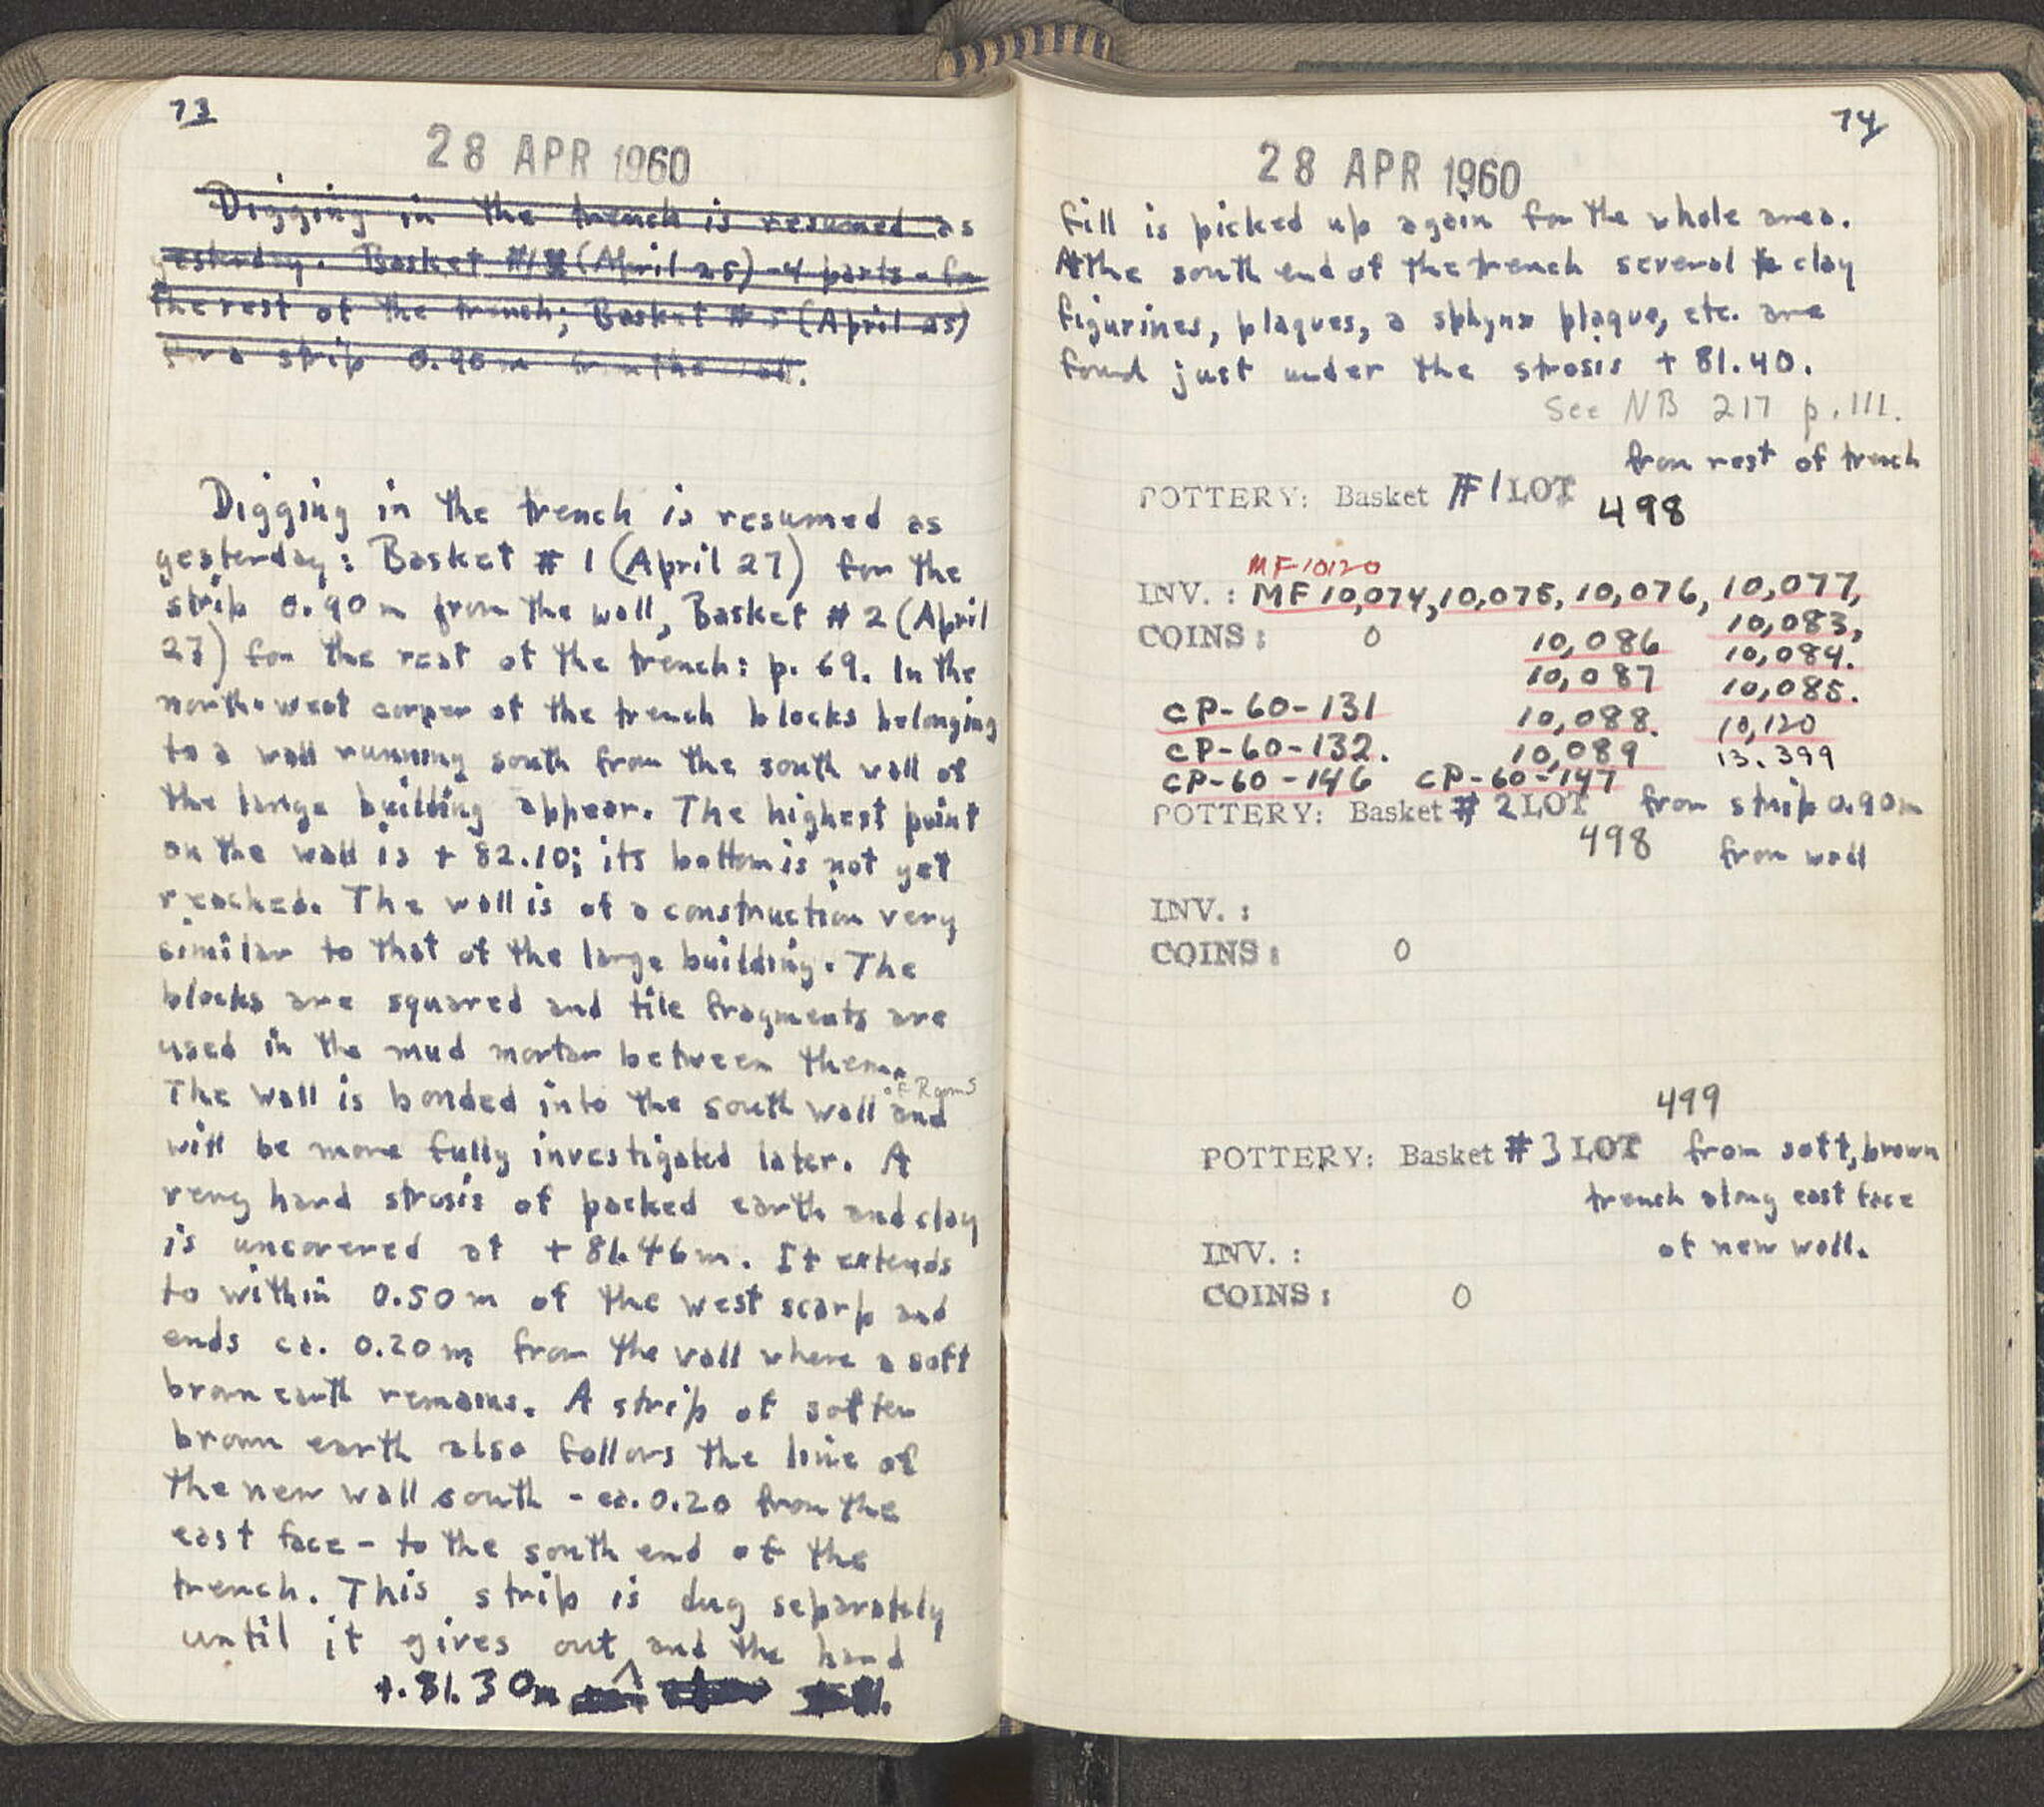 73
28 APR 1960
Digging in the trench is resumed as
yesterday. Basket #1 (April 25) - 4 parts - for
the rest of the trench; Basket # 5 (April 25)
for a strip 0.90m from the wall.
Digging in the trench is resumed as
yesterday: Basket # 1 (April 27) for the
strip 0.90m from the wall, Basket # 2 (April
27) for the rest of the trench: p. 69. In the
north-west corner of the trench blocks belonging
to a wall running south from the south wall of
the large building appear. The highest point
on the wall is + 82.10; its bottom is not yet
reached. The wall is of a construction very
similar to that of the large building. The
blocks are squared and tile fragments are
used in the mud mortar between them.
of Room S
The wall is bonded into the south wall and
will be more fully investigated later. A
very hard strosis of packed earth and clay
is uncovered at + 81.46m. It extends
to within 0.50m of the west scarp and
ends ca. 0.20m from the wall where a soft
brown earth remains. A strip of softer
brown earth also follows the line of
the new wall south - ca. 0.20 from the
east face - to the south end of the
trench. This strip is dug separately
until it gives out and the hard
+. 81.30m
74
28 APR 1960
fill is picked up again for the whole area.
At the south end of the trench several clay
figurines, plaques, a sphynx plaque, etc. are
found just under the strosis + 81.40.
See NB 217 p. 111.
from rest of trench
POTTERY: Basket #1 LOT 498
MF 10120
INV. : MF 10,074, 10,075, 10,076, 10,077,
10,083,
COINS: 0 10,086 10,084.
10,087 10,085.
CP-60-131 10,088. 10,120
CP-60-132. 10,089 13.399
CP-60-146 CP-60-147
POTTERY: Basket # 2 LOT from strip 0.90m
498 from wall
INV. :
COINS: 0
499
POTTERY: Basket # 3 LOT from soft, brown
trench along east face
INV. : of new wall.
COINS: 0